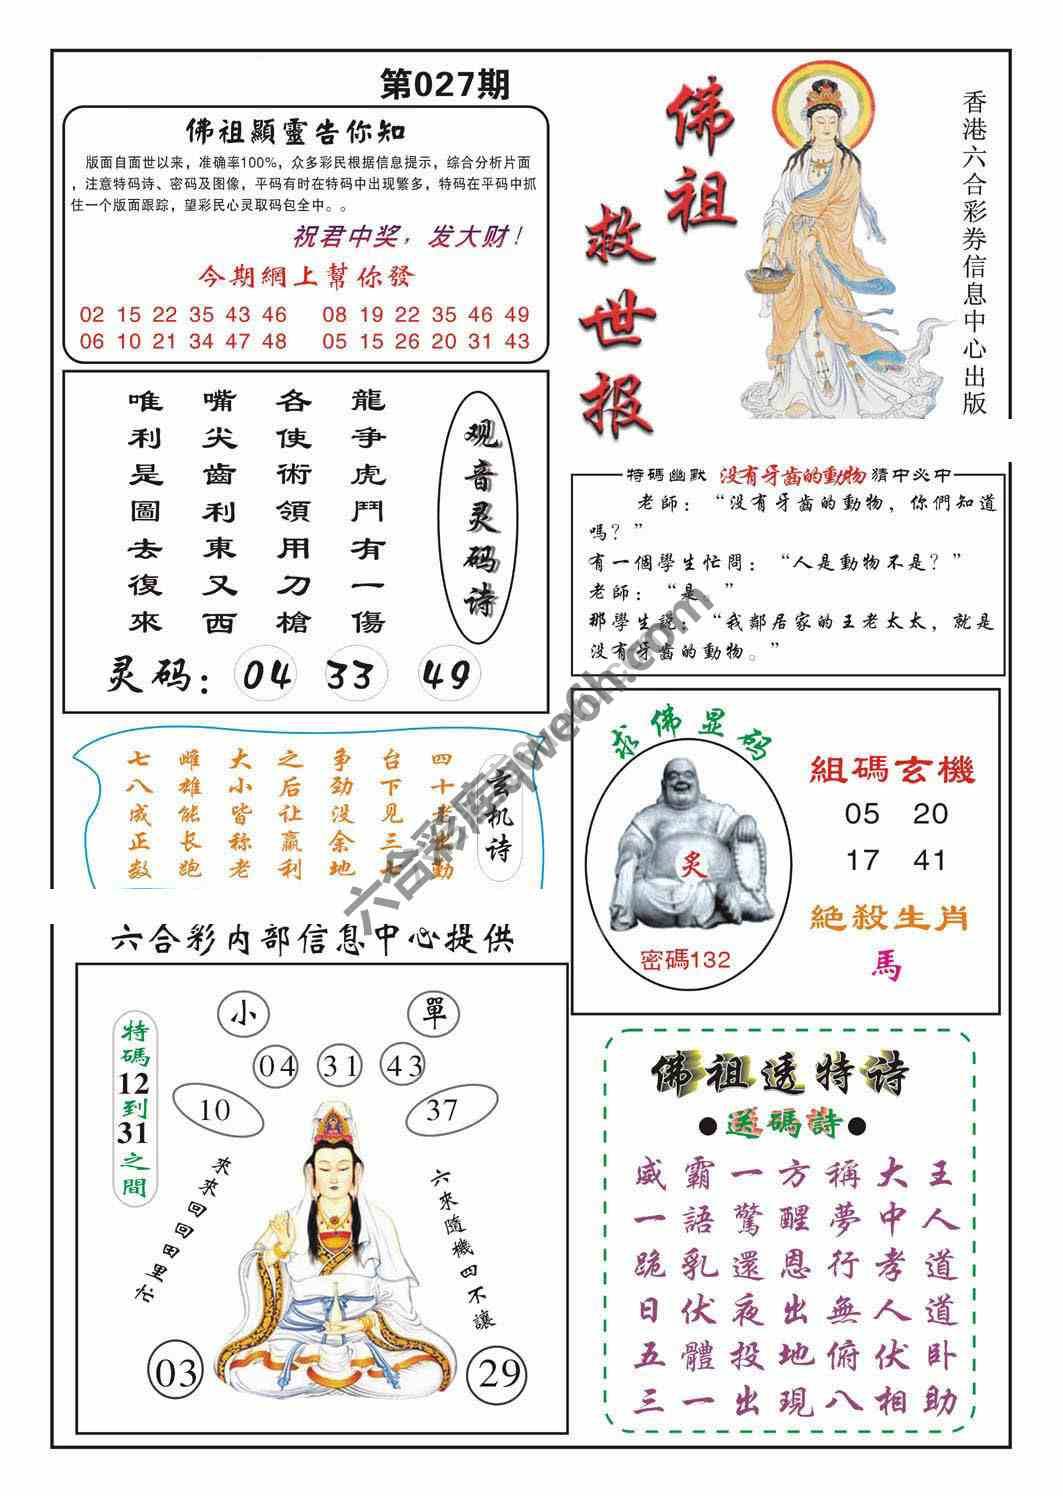 第027期
佛祖顯靈告你知
版面自面世以来，准确率100%，众多彩民根据信息提示，综合分析片面
，注意特码诗、密码及图像，平码有时在特码中出现繁多，特码在平码中抓
住一个版面跟踪，望彩民心灵取码包全中。。
祝君中奖，发大财！
今期網上幫你發
02 15 22 35 43 46 08 19 22 35 46 49
06 10 21 34 47 48 05 15 26 20 31 43
佛祖救世报
香港六合彩券信息中心出版
观音灵码诗
龍争虎鬥有一傷
各使術領用刀槍
嘴尖齒利東又西
唯利是圖去復來
灵码：04 33 49
特碼幽默 没有牙齒的動物 猜中必中
老師：“没有牙齒的動物，你們知道
嗎？”
有一個學生忙問：“人是動物不是？”
老師：“是。”
那學生説：“我鄰居家的王老太太，就是
没有牙齒的動物。”
玄机诗
四十老出動
台下见三七
争劲没余地
之后让赢利
大小皆称老
雌雄能长跑
七八成正数
求佛显码
炙
密碼132
組碼玄機
05 20
17 41
絶殺生肖
馬
六合彩内部信息中心提供
小 單
04 31 43
10 37
特碼12到31之間
來來回回田里忙
六來隨機四不讓
03 29
佛祖透特诗
●送碼詩●
威霸一方稱大王
一語驚醒夢中人
跪乳還恩行孝道
日伏夜出無人道
五體投地俯伏卧
三一出現八相助
六合彩库qwe6h.com